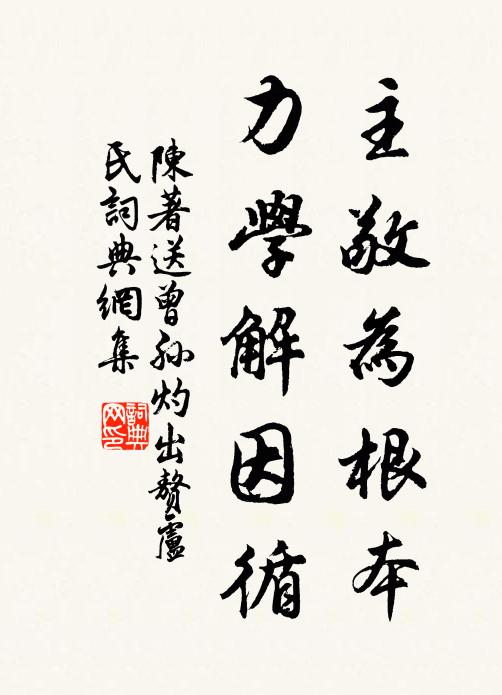 主敬為根本
力學解因循
陳著送曾孫灼出贅盧
民詞典網集
詞典
网印